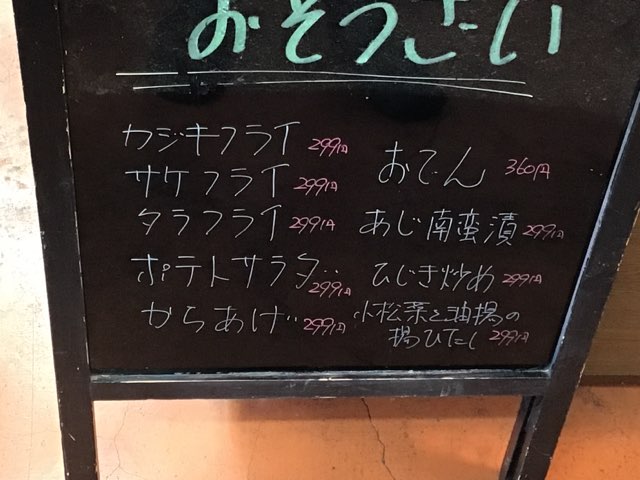 おそうざい
カジキフライ 299円
サケフライ 299円
タラフライ 299円
ポテトサラダ 299円
からあげ 299円
おでん 360円
あじ南蛮漬 299円
ひじき炒め 299円
小松菜と油揚の
揚ひたし 299円